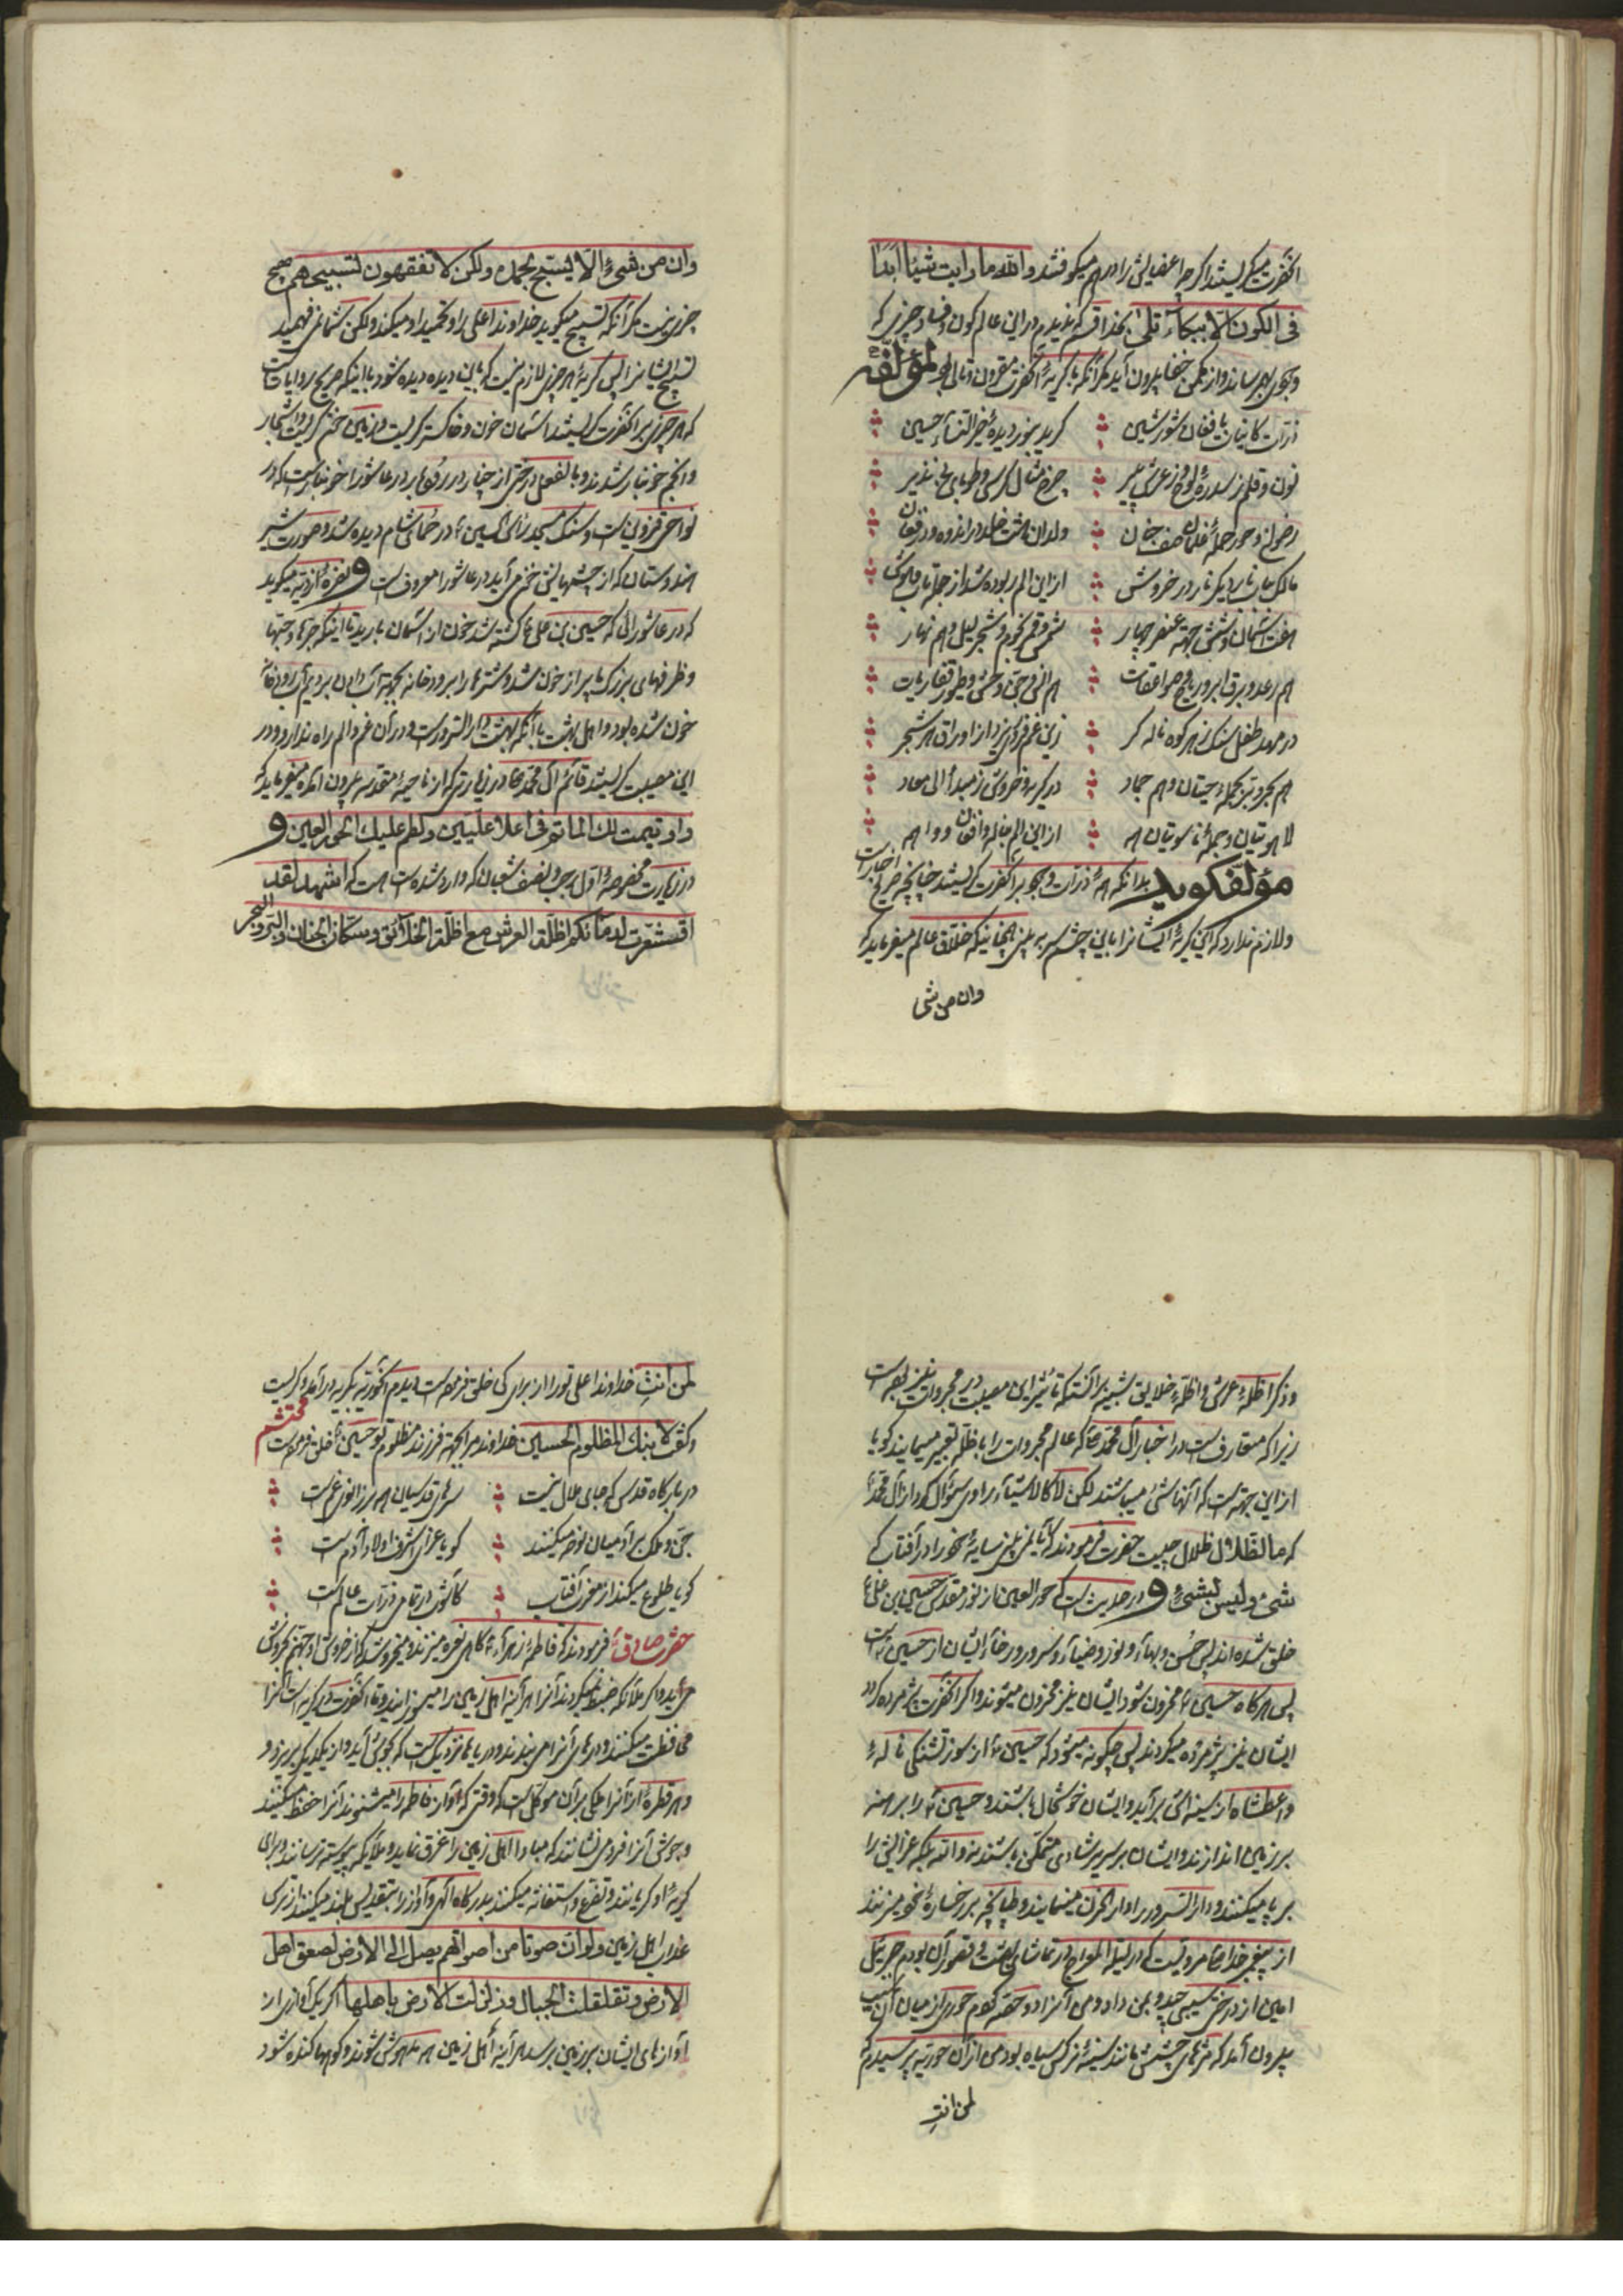 آنحضرت میگریستند اگر چه اعضایش را در هم میکوفتند والله ما رایت شیئا ابدا
فی الکون الا ببکاء تلی بخدا قسم که ندیدم در این عالم کون و فساد چیزی که
و بیرون آید مگر آنکه با گریهٔ آنحضرت مقرون لمؤلفه
ذرات کاینات با فغان و شور و شین گرید بنور دیدهٔ خیر النساء حسین
نون و قلم ز سدره و لوح و ز عرش پیر چرخ مثال کرسی و طوبای بی نظیر
رضوان و حور جمله غلمان ولدان هشت خلد در اندوه و در فغان
مالک بنار دیگر نار در خروش از این الم ربوده شد از جمله تاب و هوش
هفت آسمان و شش جهة عنصر چهار شمس و قمر نجوم و شجر لیل و هم نهار
هم رعد و برق ابر و ریاح و صواعقات هم انس و جن و وحش و طیور
در مهد طفل سنک ز هر کوه ناله گر زین غم فرو بریزد از اوراق هر شجر
هم بحر و بر جمله حیتان و هم جماد در گریه و خروش ز مبدأ الی معاد
لاهوتیان و جملهٔ ناسوتیان همه از این الم بناله و افغان و واهمه
مؤلف گوید بدانکه همهٔ ذرات وجود بر آنحضرت گریستند چنانچه صریح اخبار است
و لازم ندارد که این گریهٔ ایشانرا باین چشم سر به بینی همچنانیکه خلاق عالم میفرماید که
وان من شی
وان من شیء الا یسبح بحمده ولکن لا تفقهون تسبیحهم هیچ
چیزی نیست مگر آنکه تسبیح میگوید خداوند اعلی را و تحمید او میکند و لکن شما نمی فهمید
تسبیح ایشانرا پس گریهٔ هر چیز لازم نیست که باین دیده دیده شود با اینکه صریح روایات است
که هر چیزی بر آنحضرت گریستند آسمان خون و خاکستر گریست و زمین گریست و اشجار
و انجم خونبار شدند و بالفعل درختی از چنار در روز عاشورا خونبار است که در
نواحی قزوین است و سنک مسجد راس الحسین ع در حمای شام دیده شد و صورت شیر
هندوستان که از چشمهایش خون می آید در عاشورا معروف است و نضرهٔ ازدیه میگوید
که در عاشورائی که حسین بن علی ع کشته شد خون از آسمان بارید تا اینکه جره ها و
و ظرفهای بزرک ما پر از خون شد و شترها را برودخانه بجهة آب دادن بردیم آب رودخانه
خون شده بود و اهل بهشت با آنکه بهشت دار السرور است و در آن غم و الم راه ندارد و در
این مصیبت گریستند قائم آل محمد ص در زیارتی که از ناحیهٔ مقدسه بیرون آمده میفرماید که
و اقیمت لک الماتم فی اعلا علیین و لطم علیک الحور العین و
در زیارت مخصوصهٔ اول رجب و نصف شعبان که وارد شده است هست که اشهد لقد
اقشعرت لدمائکم اظلة العرش مع اظلة الخلائق و سکان الجنان والبر والبحر
و ذکر اظلهٔ عرش و اظلهٔ خلایق شبیه بر آنستکه تاثیر این مصیبت در مجردات نیز بوده است
زیرا که متعارف است در اخبار آل محمد ص که عالم مجردات را باظله تعبیر مینمایند گویا
از این جهة است که آنها شیء میباشند لکن لا کالاشیاء راوی سؤال کرد از آل محمد
که ما الظلال ظلال چیست حضرت فرمودند که آیا نمی بینی سایهٔ خود را در آفتاب که
شیء ولیس بشیء و در حدیث است که حور العین از نور مقدس حسین بن علی ع
خلق شده اند پس حسن و بهاء و نور و ضیاء و سرور رخساره ایشان از حسین ع است
پس هرگاه حسین ع محزون شود ایشان نیز محزون میشوند و اگر آنحضرت پژمرده گردد
ایشان نیز پژمرده میگردند پس چگونه میشود که حسین ع از سوز تشنگی نالهٔ
وا عطشاه از سینه اش برآید و ایشان خوشحال باشند و حسین ع را برهنه
بر زمین اندازند و ایشان بر سریر شادی متمکن باشند نه والله بلکه عزایش را
بر پا میکنند و دار السرور را دار الحزن مینمایند و طپانچه بر رخسارهٔ خود میزنند
از پیغمبر خدا ص مرویست که در لیلة المعراج در تماشای بهشت و قصور آن بودم جبرئیل
امین از درختی سیبی چید و بمن داد و من آنرا دو حصه کردم حوری از میان آن سیب
بیرون آمد که مژهای چشمش مانند سینهٔ کرکس سیاه بود من از آن حوریه پرسیدم که
لمن انتِ
لمن انتِ خداوند اعلی تو را از برای کی خلق فرموده است دیدم آنحوریه بگریه در آمد و گریست
و گفت لابنک المظلوم الحسین خداوند مرا بجهة فرزند مظلوم تو حسین ع خلق فرموده است محتشم
در بارگاه قدس که جای ملال نیست سرهای قدسیان همه بر زانوی غم است
جن و ملک بر آدمیان نوحه میکنند گویا عزای اشرف اولاد آدم است
گویا طلوع میکند از مغرب آفتاب کآشوب در تمامی ذرات عالم است
حضرت صادق ع فرمودند که فاطمهٔ زهراء ع گاهی نعره میزند و میخروشد که از خروش او جهنم بخروش
می آید و اگر ملائکه ضبط نمیکردند آنرا هر آینه اهل زمین را میسوزانید و تا آنحضرت در گریه است آنرا
محافظت میکنند و درهای آنرا می بندند و دریاها نزدیک است که بجوش آید و از یکدیگر بریزد و
و هر قطرهٔ از آنرا ملکی بر آن موکل است که وقتی که آواز فاطمه را میشنوند آنرا حفظ میکنند
و جوش آنرا فرو می نشانند که مبادا اهل زمین را غرق نماید و ملائکه پیوسته ترسانند و برای
گریهٔ او گریانند و تضرع و استغاثه میکنند بدرگاه الهی و آواز را بتقدیس بلند میکنند از ترس
عذاب اهل زمین و لو ان صوتا من اصواتهم یصل الی الارض لصعق اهل
الارض و تقلقلت الجبال و زلزلت الارض باهلها اگر یک آوازی از
آوازهای ایشان بر زمین برسد هر آینه اهل زمین همه مدهوش شوند و کوهها کنده شود